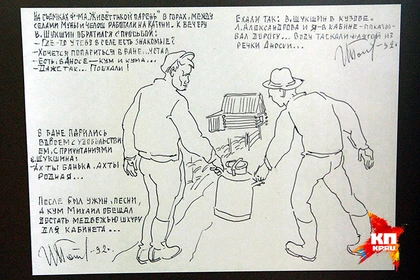 НА СЪЁМКАХ Ф-МА „ЖИВЁТ ТАКОЙ ПАРЕНЬ" В ГОРАХ, МЕЖДУ
СЁЛАМИ МУНЫ И ЧЕПОШ РАБОТАЛИ НА КАТУНИ. К ВЕЧЕРУ
В. ШУКШИН ОБРАТИЛСЯ С ПРОСЬБОЙ:
- ГДЕ-ТО У ТЕБЯ В СЕЛЕ ЕСТЬ ЗНАКОМЫЕ?
- ХОЧЕТСЯ ПОПАРИТЬСЯ В БАНЕ... УСТАЛ...
- ЕСТЬ, В АНОСЕ – КУМ И КУМА...
- ДАЖЕ ТАК... ПОЕХАЛИ!
ЕХАЛИ ТАК: В. ШУКШИН В КУЗОВЕ,
Л. АЛЕКСАНДРОВА И Я – В КАБИНЕ – ПОКАЗЫ-
ВАЛ ДОРОГУ... ВОДУ ТАСКАЛИ ФЛЯГОЙ ИЗ
РЕЧКИ АНОСИ...
92 г.
В БАНЕ ПАРИЛИСЬ
ВДВОЁМ С УДОВОЛЬСТВИ
ЕМ, С ПРИЧИТАНИЯМИ
В. ШУКШИНА:
- АХ ТЫ БАНЬКА, АХ ТЫ
РОДНАЯ...
ПОСЛЕ БЫЛ УЖИН, ПЕСНИ,
А КУМ МИХАИЛ ОБЕЩАЛ
ДОСТАТЬ МЕДВЕЖЬЮ ШКУРУ
ДЛЯ КАБИНЕТА...
92 г.
КП
KP.RU